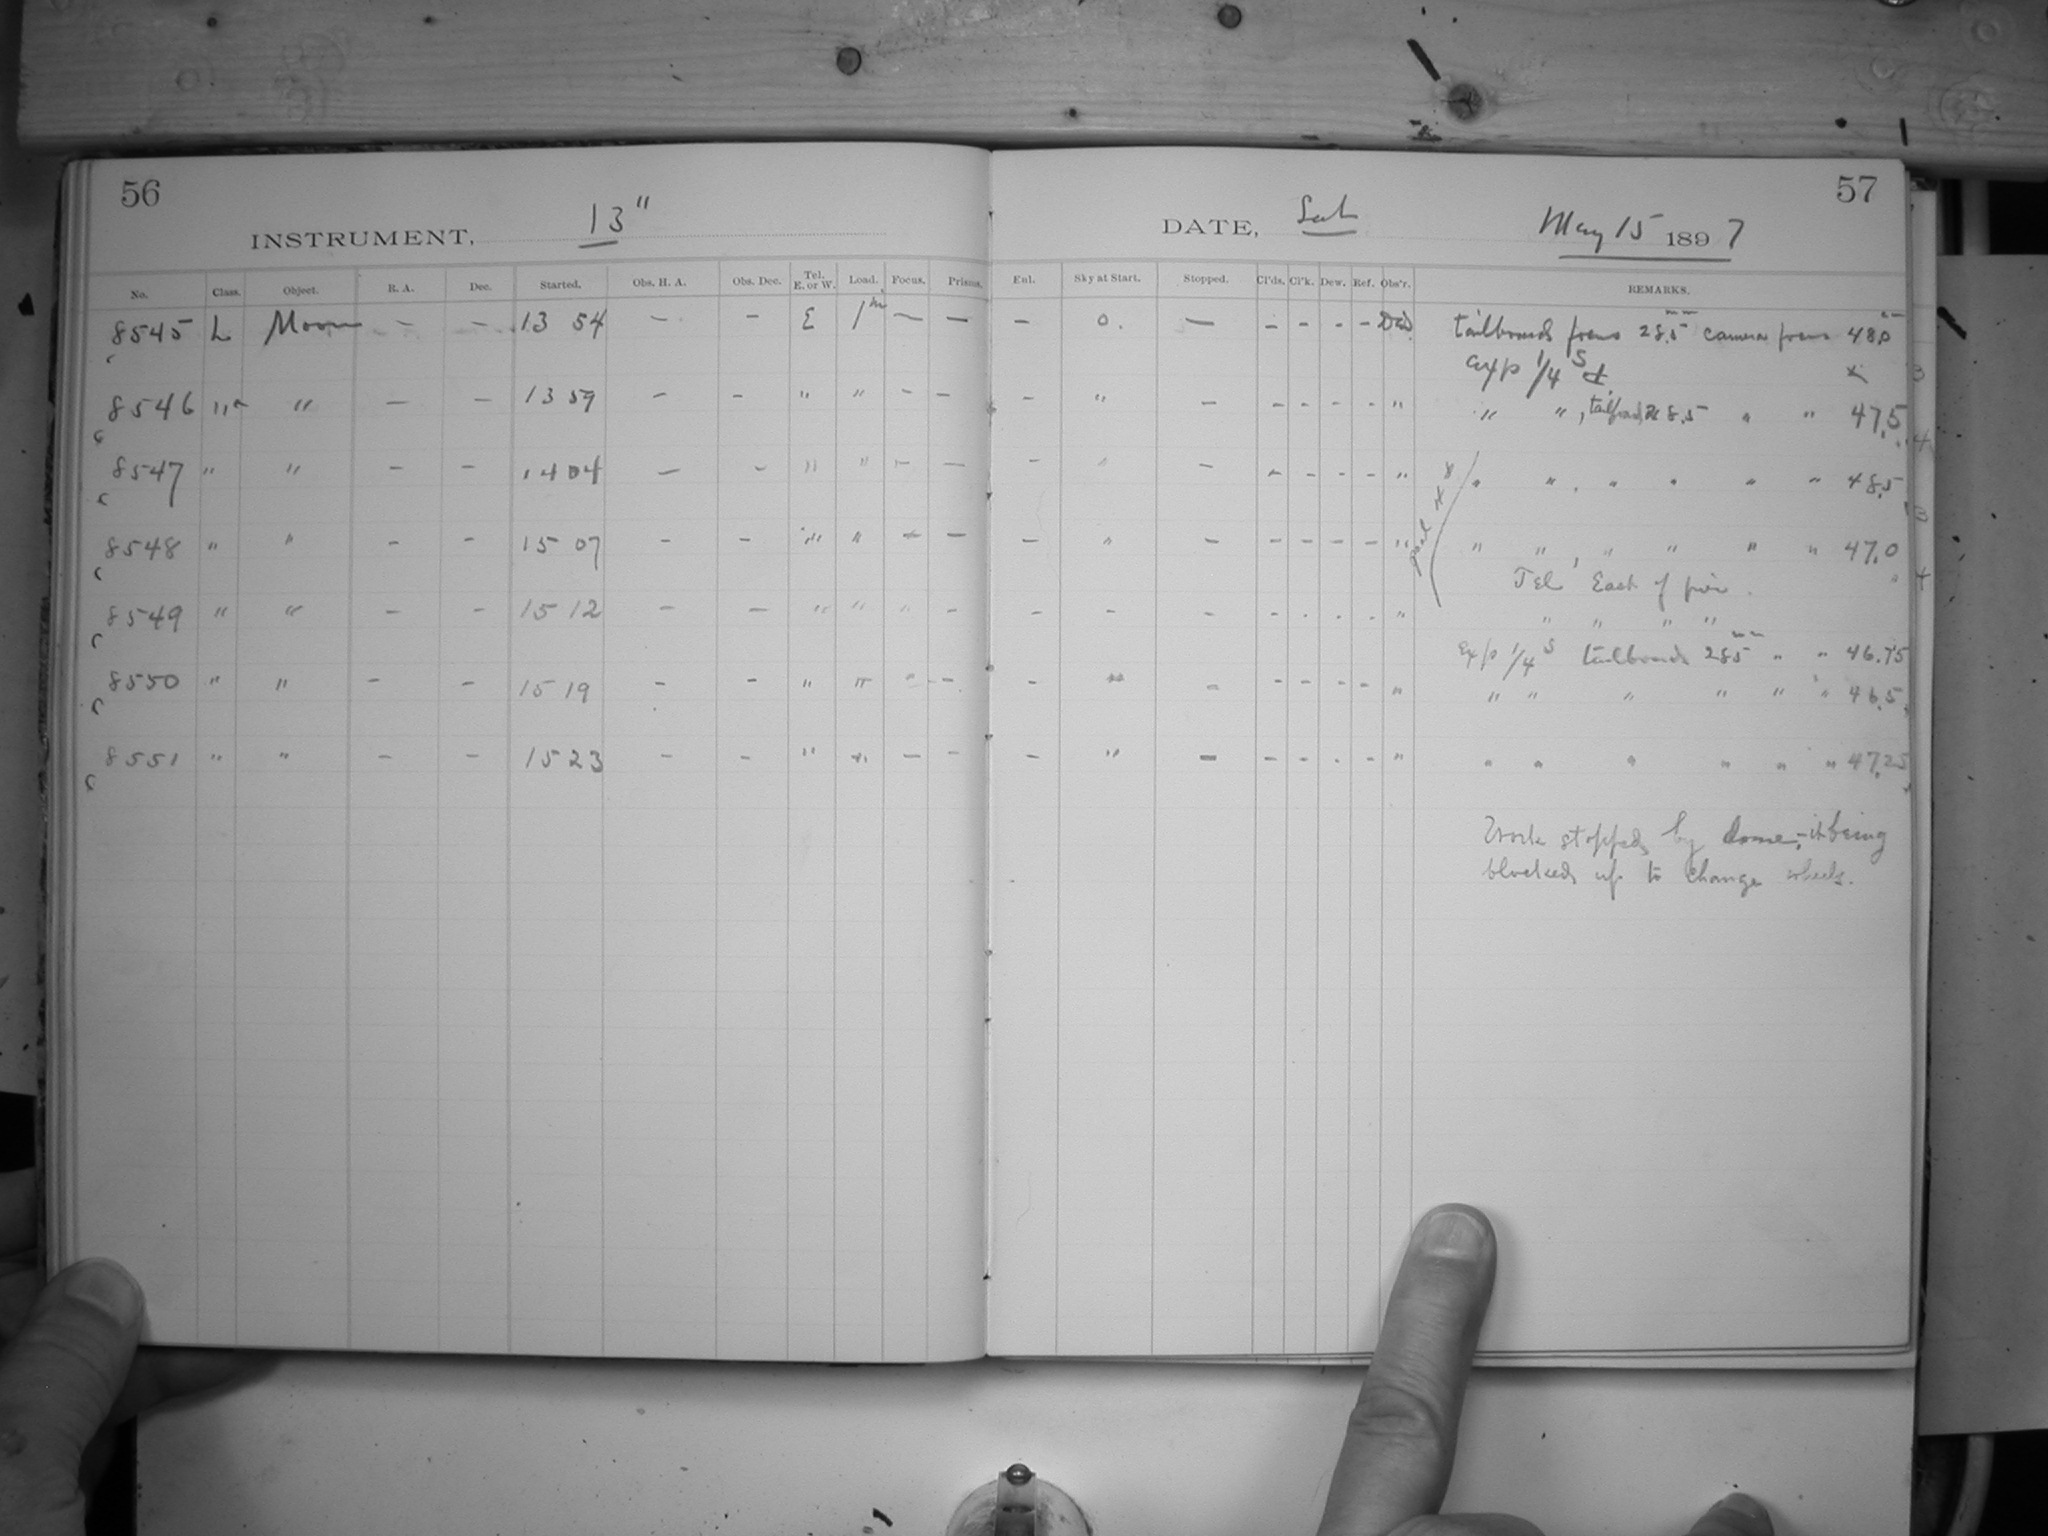 56
57
INSTRUMENT, 13"
DATE, Sat May 15 1897
No. Class. Object. R. A. Dec. Started. Obs. H. A. Obs. Dec. Tel. E. or W. Load. Focus. Prisms. Enl. Sky at Start. Stopped. Cl'ds. Cl'k. Dew. Ref. Obs'r. REMARKS.
8545 L Moon - - 13 54 - - E 1m - - - 0. - - - - - tailboard focus 28.5 camera focus 48.0
exp 1/4 s
8546 " " - - 13 59 - - " " - - - " - - - - - " " " , 28.5 " " 47.5
8547 " " - - 14 04 - - " " - - - " - - - - - " " " . " " " " 48.5
8548 " " - - 15 07 - - " " - - - " - - - - - " " " , " " " " 47.0
Tel East of pier.
8549 " " - - 15 12 - - " " " - - - - - - - - " " " " "
Exp 1/4 s tailboard 28.5 " " 46.75
8550 " " - - 15 19 - - " " - - - " - - - - - " " " " " " " 46.5
8551 " " - - 15 23 - - " " - - - " - - - - - " " " " " " " 47.25
Work stopped by dome, - it being
blocked up to change wheels.